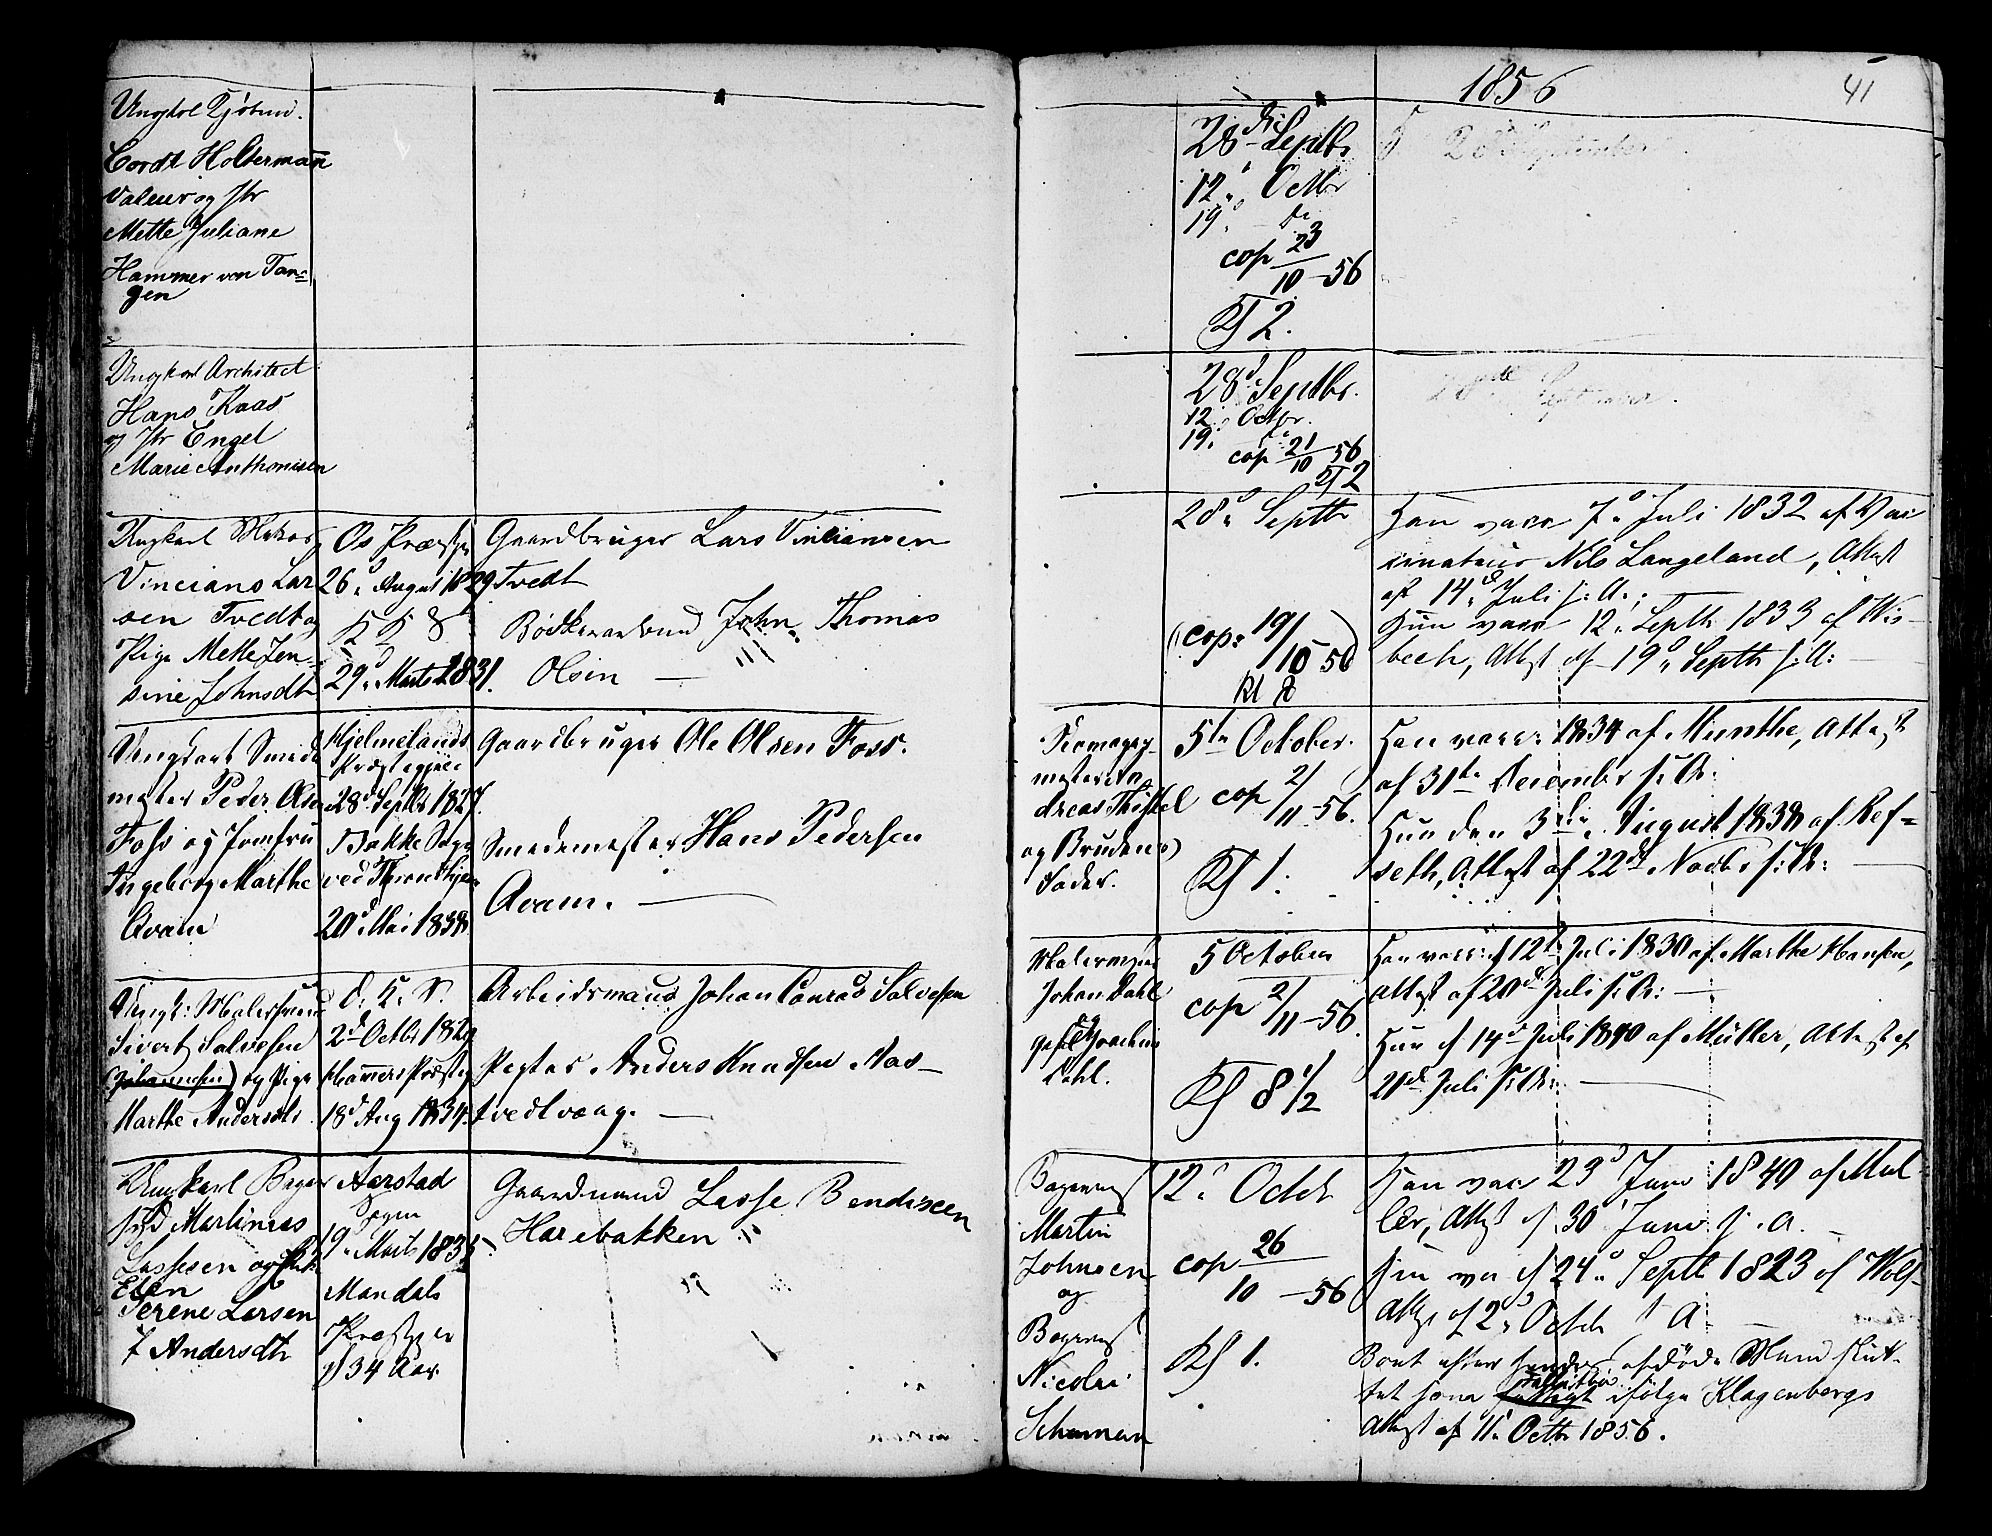 1856
41
Ungkarl Kjøbmd.
Cordt Holtermann
Valeur og Jfr
Mette Juliane
Hammer von Tan=
gen
28de Septbr
12te Octbr
19. de
cop 23/10 - 56
Kl 2.
28 September
Ungkarl Architect
Hans Kaas
og Jfr Engel
Marie Anthonisen
28d Septbr.
12. Octbr.
19.
cop 21/10 56
Kl 2
28 September.
Ungkarl
Vinciano Lar
sen Tvedt og
Pige Mette Jen=
sine Johnsdtr
Os Præstgj
26d August 1829
K K 8
29d Marts 1831.
Gaardbruger Lars Vinciansen
Tvedt
Bødkersvend John Thomas
Olsen
28d Septbr
(cop: 19/10 56)
Kl 8
Han vacc 7d Juli 1832 af Vac
cinateur Nils Langeland, Attest
af 14d Juli s: A:;
Hun vacc 12. Septbr 1833 af Wis-
bech, Attest af 19d Septbr s: A:
Ungkarl Smede
mester Peder Olsen
Foss og Jomfru
Ingeborg Marthe
Avam
Hjelmelands
Præstegjeld
28d Septbr 1827.
Bakke Sogn
ved Throndhjem
20d Mai 1838
Gaardbruger Ole Olsen Foss.
Smedemester Hans Pedersen
Avam.
mester An
dreas Thistel
og Brudens
Fader.
5te October.
cop 2/11 - 56.
Kl 1.
Han vacc: 1834 af Munthe, Attest
af 31te December s: A:
Hun den 3die August 1838 af Ref=
seth, Attest af 22d Novbr s: A:
Ungk: Malersvend
Sivert Salvesen
(Johannesen) og Pige
Marthe Andersdtr
d. K. S.
2d Octbr 1829
Hammers Præsteg
18d Aug 1834.
Arbeidsmand Johan Conrad Salvesen
Pagter Anders Knudsen Nas-
tvedtvaag.
Malermester
Johan Dahl
og
Joachim
Dahl.
5 October
cop 2/11 - 56.
Kl 8 1/2
Han vacc: d 12te Juli 1830 af Marthe Hansen,
Attest af 20d Juli s: A:
Hun d 14d Juli 1840 af Müller, Attest af
21d Juli s: A:
Ungkarl Bager
svd Martinus
Lassesen og Enke
Elen
Serene Larsen
f Andersdtr
Aarstad
Sogn
19. Marts 1835.
Mandals
Præstgjed
34 Aar
Gaardmand Lasse Bendixen
Harebakken
Bagermst
Martin
Johnsen
og
Bagermst
Nicolai
Schuman
12. Octbr
cop 26/10 - 56
Kl 1.
Han vacc 23d Juni 1849 af Mül-
ler, Attest af 30 Juni s. A.
Hun vac d 24d Septbr 1823 af Wolf
Attest af 2d Octbr s A
Boet efter hendes afdøde Mand slut-
tet som ifølge Klagenbergs
Attest af 11 Octbr 1856.